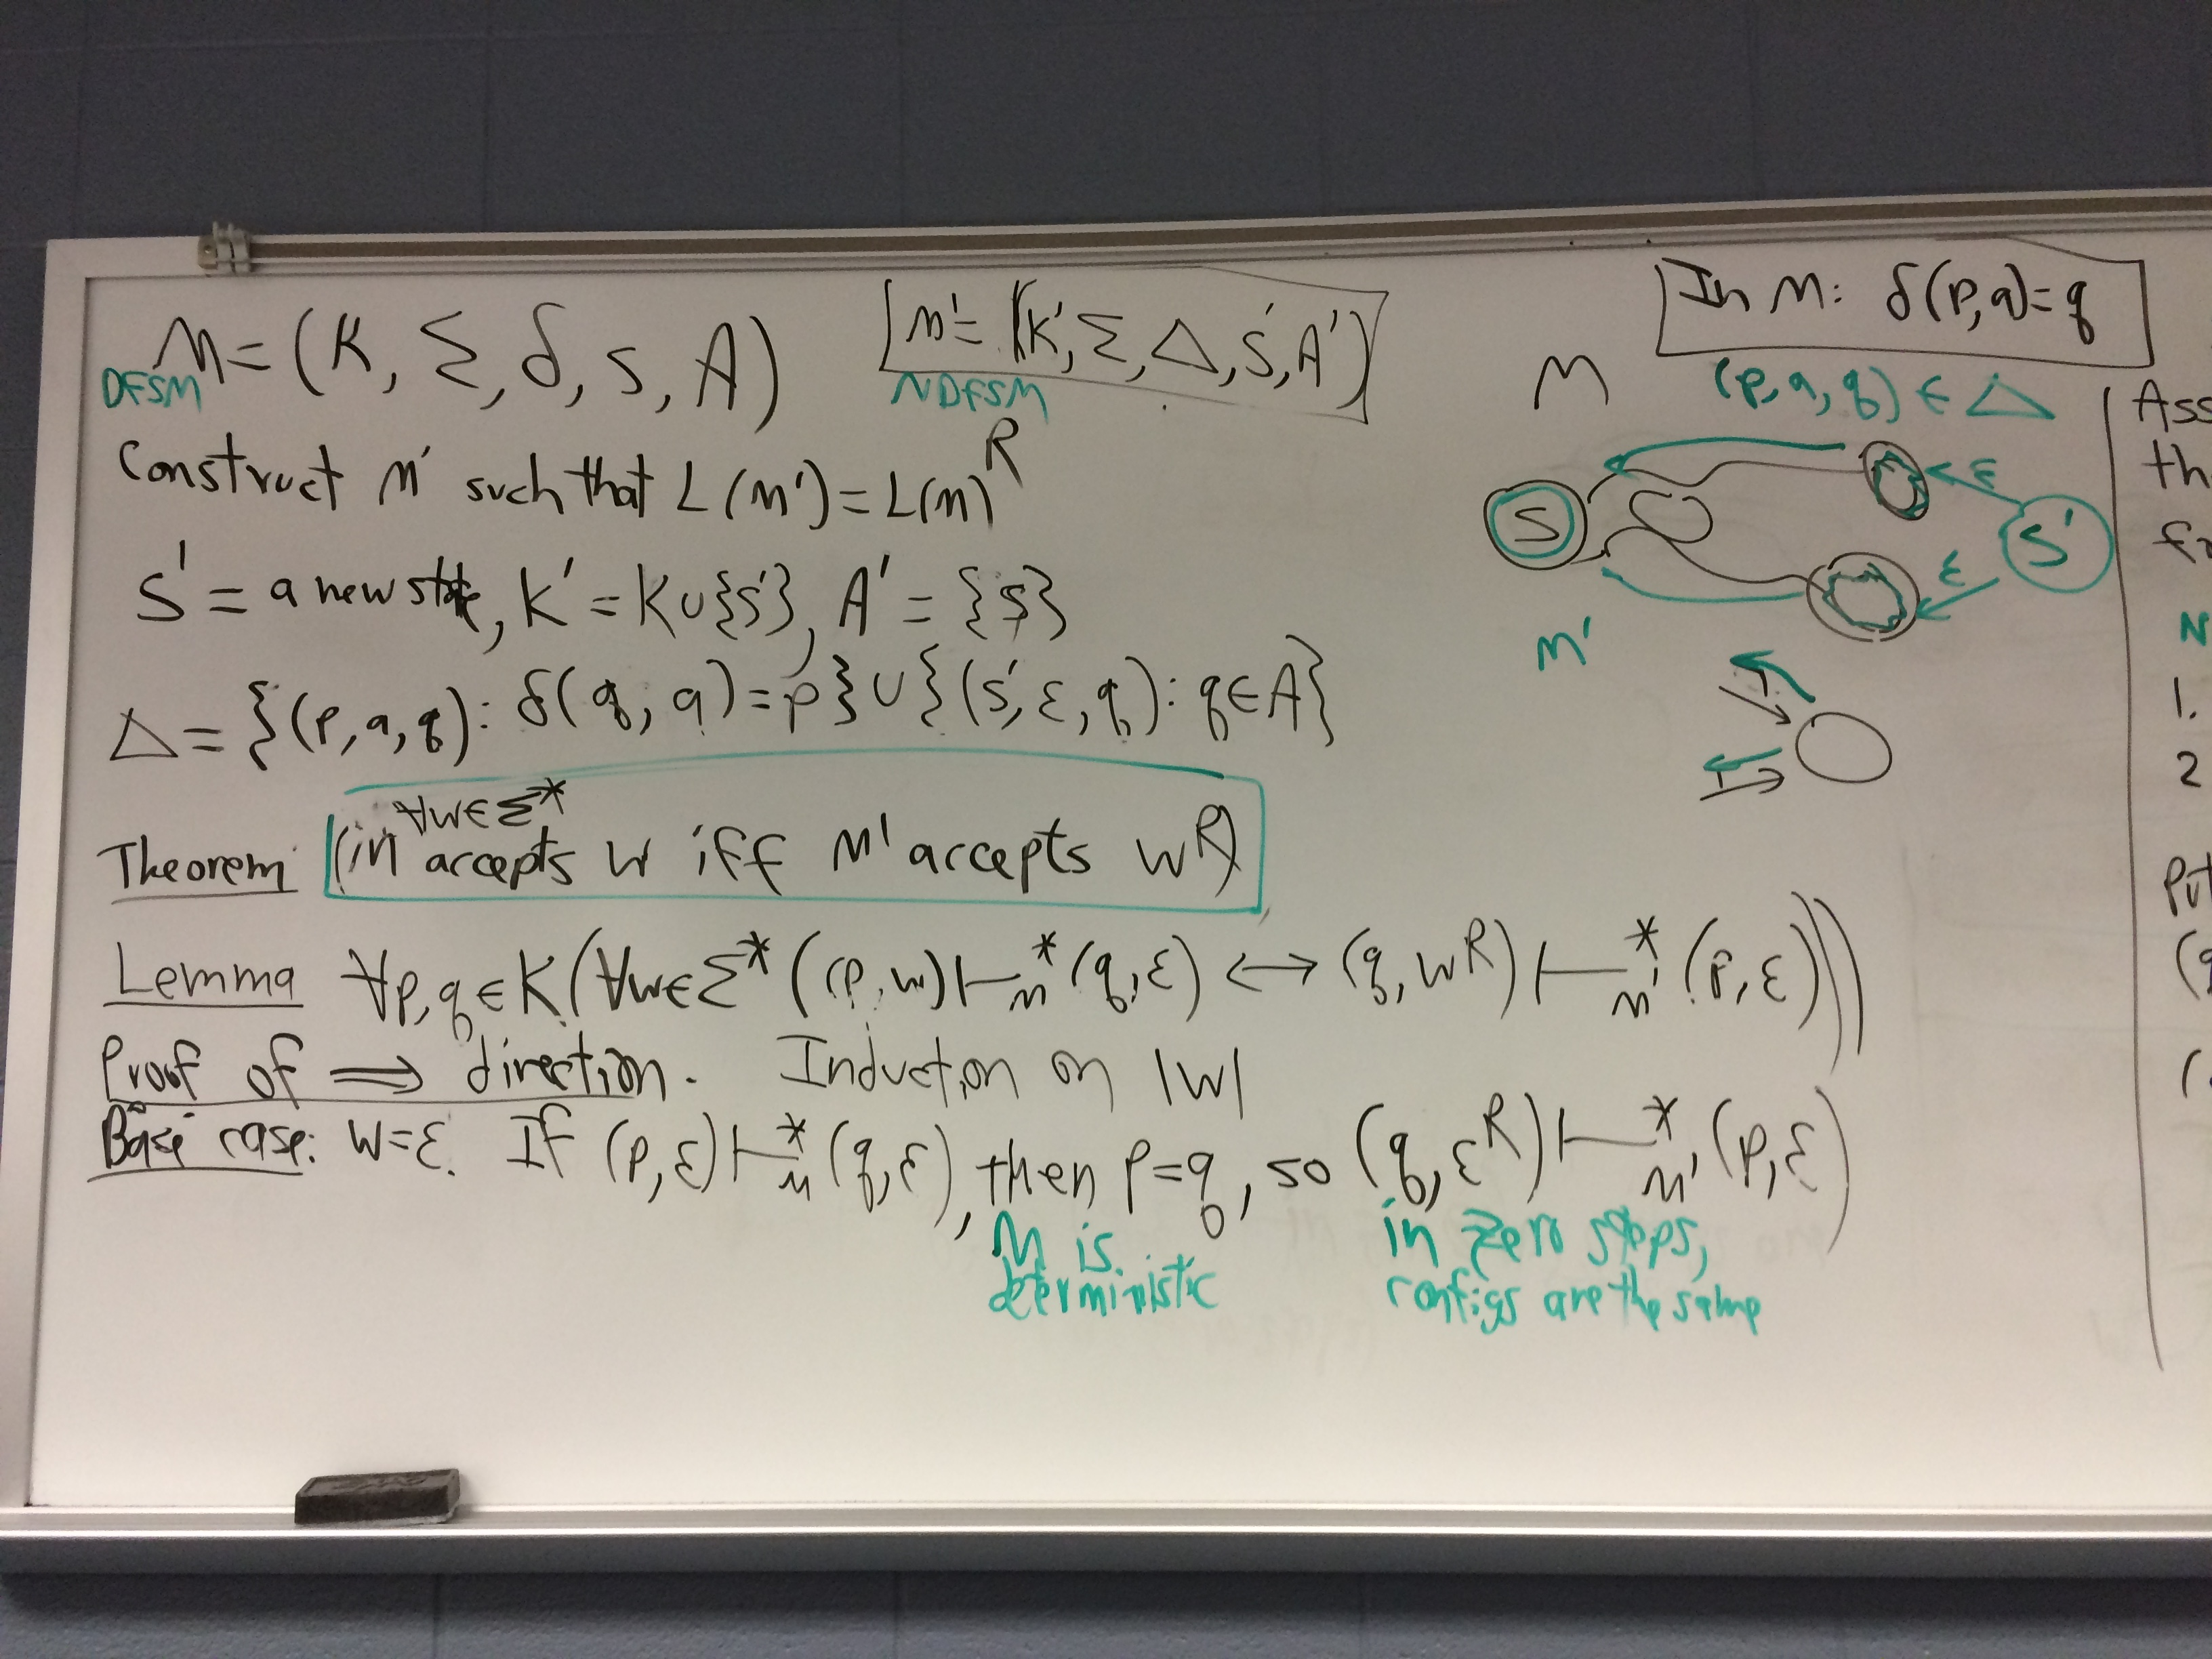 M = (K, Σ, δ, s, A)
DFSM
M' = (K', Σ, Δ, s', A')
NDFSM
Construct M' such that L(M') = L(M)^R
s' = a new state, K' = K∪{s'}, A' = {s}
Δ = {(p,a,q): δ(q,a)=p} ∪ {(s',ε,q): q∈A}
∀w∈Σ*
Theorem (M accepts w iff M' accepts w^R)
Lemma ∀p,q∈K(∀w∈Σ*((p,w)⊢_M^*(q,ε) ↔ (q,w^R)⊢_M'^*(p,ε)))
Proof of ⇒ direction. Induction on |w|
Base case: w=ε. If (p,ε)⊢_M^*(q,ε), then p=q, so (q,ε^R)⊢_M'^*(p,ε)
M is
deterministic
in zero steps,
configs are the same
In M: δ(p,a)=q
M
(p,a,q) ∈ Δ
ε
S
S'
ε
M'
Ass
th
N
1.
2
Put
(q
(